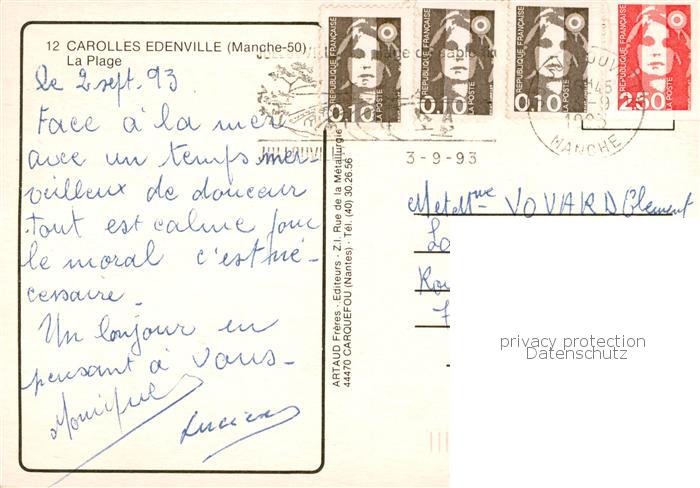 12 CAROLLES EDENVILLE (Manche-50)
La Plage
le 2 sept. 93
Face à la mer
avec un temps mer-
veilleux de douceur
tout est calme pour
le moral c'est né-
cessaire.
Un bonjour en
pensant à vous-
Monique
Lucien
ARTAUD Frères - Editeurs - Z.I. Rue de la Métallurgie
44470 CARQUEFOU (Nantes) - Tél. (40) 30.26.56
REPUBLIQUE FRANÇAISE
0,10
LA POSTE
REPUBLIQUE FRANÇAISE
0,10
LA POSTE
REPUBLIQUE FRANÇAISE
0,10
LA POSTE
REPUBLIQUE FRANÇAISE
2,50
LA POSTE
1993
MANCHE
3-9-93
M et Mme VOVARD Clement
privacy protection
Datenschutz